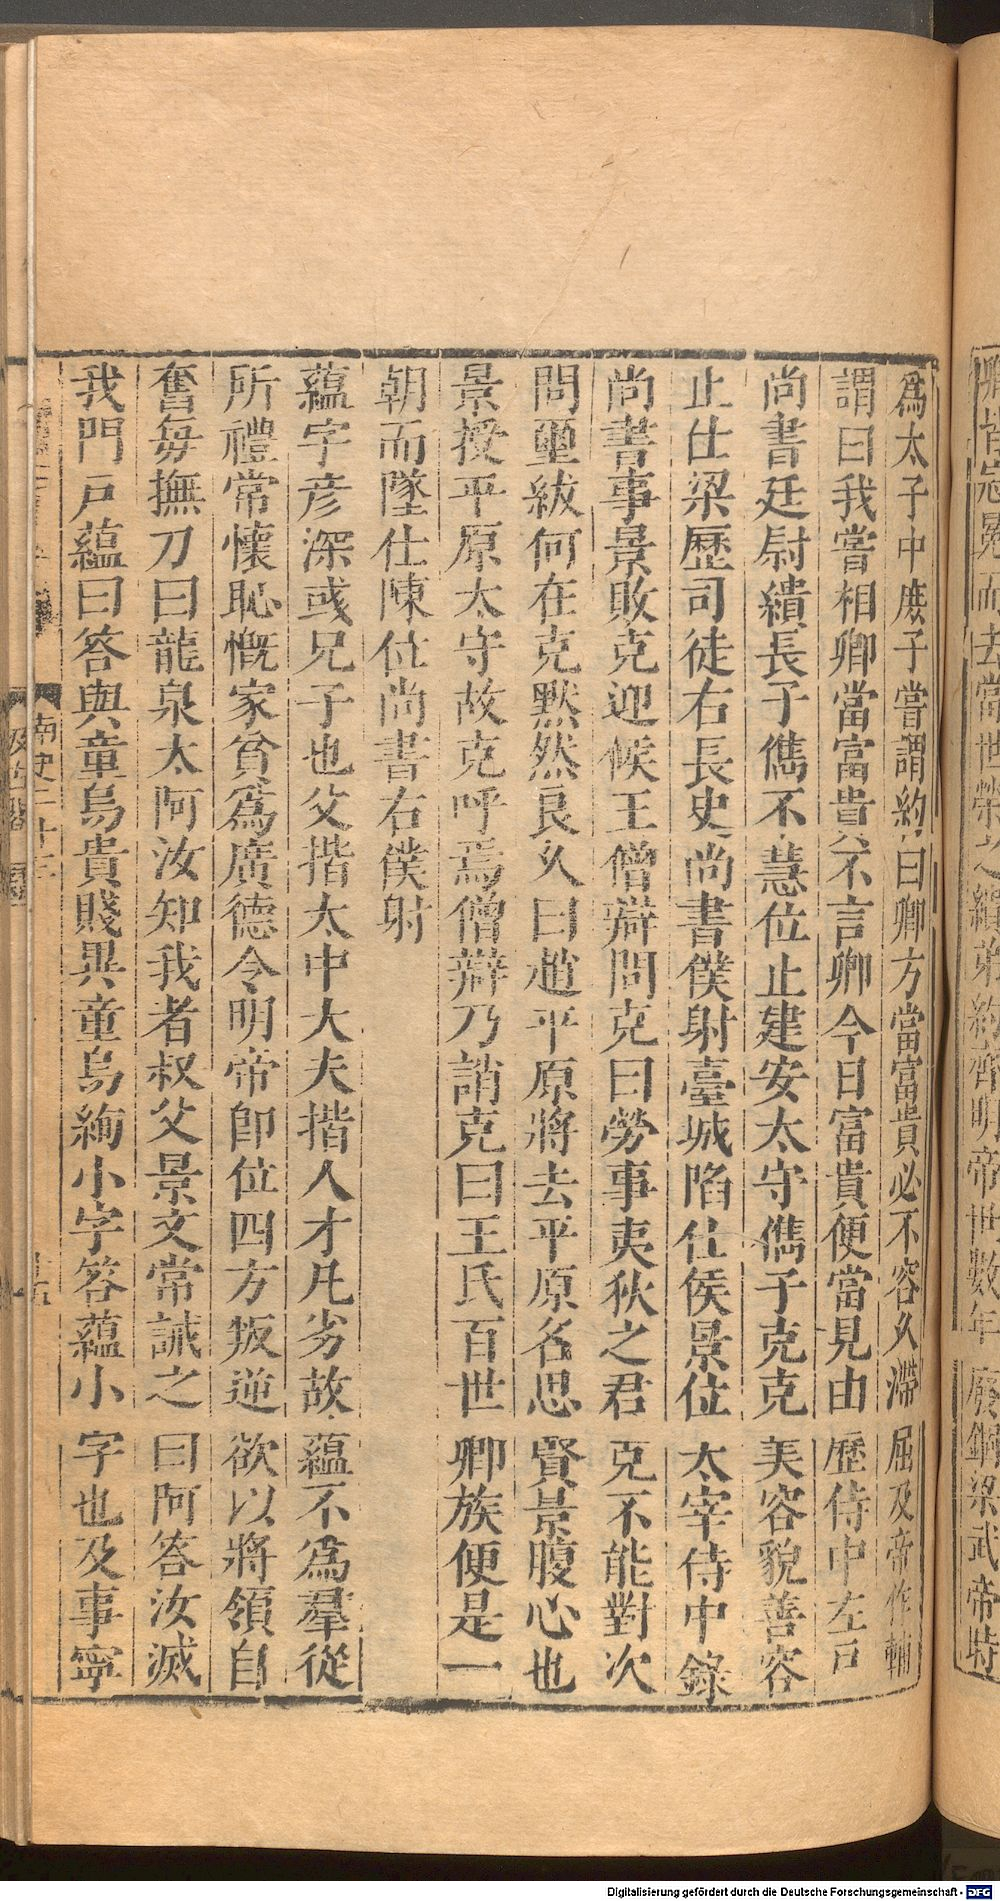 卿皆忘冕而去當世榮之績弟約齊明帝世數年廢錮梁武帝特
爲太子中庶子嘗謂約曰卿方當富貴必不容久滯屈及帝作輔
謂曰我嘗相卿當富貴不言卿今日富貴便當見由歷侍中左戸
尚書廷尉繢長子儁不慧位止建安太守儁子克克美容貌善容
止仕梁歷司徒右長史尚書僕射臺城陷仕侯景位太宰侍中錄
尚書事景敗克迎候王僧辯問克曰勞事夷狄之君克不能對次
問璽紱何在克黙然良久曰趙平原將去平原名思賢景腹心也
景授平原太守故克呼焉僧辯乃誚克曰王氏百世卿族便是一
朝而墜仕陳位尚書右僕射
蘊字彦深彧兄子也父揩太中大夫揩人才凡劣故蘊不爲羣從
所禮常懷恥慨家貧爲廣德令明帝卽位四方叛逆欲以將領自
奮每撫刀曰龍泉太阿汝知我者叔父景文常誡之曰阿答汝滅
我門戸蘊曰答與童烏貴賤異童烏絢小字答蘊小字也及事寧
南史二十三
汲古閣
Digitalisierung gefördert durch die Deutsche Forschungsgemeinschaft - DFG